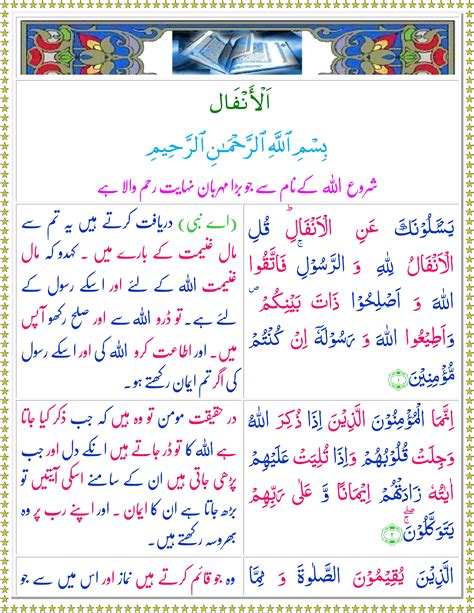 اَلْأَنْفَال
بِسْمِ ٱللَّهِ ٱلرَّحْمَـٰنِ ٱلرَّحِيمِ
شروع اللہ کے نام سے جو بڑا مہربان نہایت رحم والا ہے
يَسْـَٔلُوْنَكَ عَنِ الْاَنْفَالِ ؕ قُلِ
الْاَنْفَالُ لِلّٰهِ وَ الرَّسُوْلِ ۚ فَاتَّقُوا
اللّٰهَ وَ اَصْلِحُوْا ذَاتَ بَيْنِكُمْ ۪
وَاَطِيْعُوا اللّٰهَ وَ رَسُوْلَهٗۤ اِنْ كُنْتُمْ
مُّؤْمِنِيْنَ ﴿۱﴾
(اے نبی) دریافت کرتے ہیں یہ تم سے
مال غنیمت کے بارے میں ۔ کہدو کہ مال
غنیمت اللہ کے لئے اور اسکے رسول کے
لئے ہے۔ تو ڈرو اللہ سے اور صلح رکھو آپس
میں۔ اور اطاعت کرو اللہ کی اور اسکے رسول
کی اگر تم ایمان رکھتے ہو۔
اِنَّمَا الْمُؤْمِنُوْنَ الَّذِيْنَ اِذَا ذُكِرَ اللّٰهُ
وَجِلَتْ قُلُوْبُهُمْ وَاِذَا تُلِيَتْ عَلَيْهِمْ
اٰيٰتُهٗ زَادَتْهُمْ اِيْمَانًا وَّ عَلٰى رَبِّهِمْ
يَتَوَكَّلُوْنَ ۖ ۚ ﴿۲﴾
در حقیقت مومن تو وہ ہیں کہ جب ذکر کیا جاتا
ہے اللہ کا تو ڈر جاتے ہیں انکے دل اور جب
پڑھی جاتی ہیں ان کے سامنے اسکی آیتیں تو
بڑھ جاتا ہے ان کا ایمان ۔ اور اپنے رب پر وہ
بھروسہ رکھتے ہیں۔
الَّذِيْنَ يُقِيْمُوْنَ الصَّلٰوةَ وَ مِمَّا
وہ جو قائم کرتے ہیں نماز اور اس میں سے جو